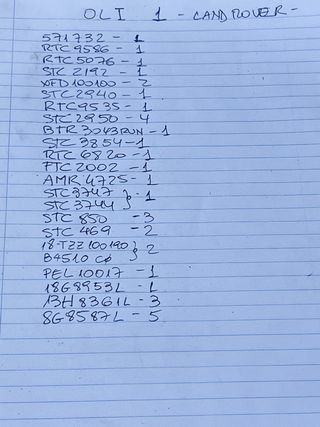 OLI 1 - LANDROVER -
571732 - 1
RTC 9586 - 1
RTC 5076 - 1
STC 2192 - 1
XFD100100 - 2
STC 2940 - 1
RTC 9535 - 1
STC 2950 - 4
BTR 3043RUN - 1
STC 3854 - 1
RTC 6820 - 1
FTC 2002 - 1
AMR 4725 - 1
STC 3747 } - 1
STC 3744
STC 850 - 3
STC 469 - 2
18-TZZ100190 } 2
B4510 CØ
PEL 10017 - 1
18G8953L - 1
13H8361L - 3
8G8587L - 5